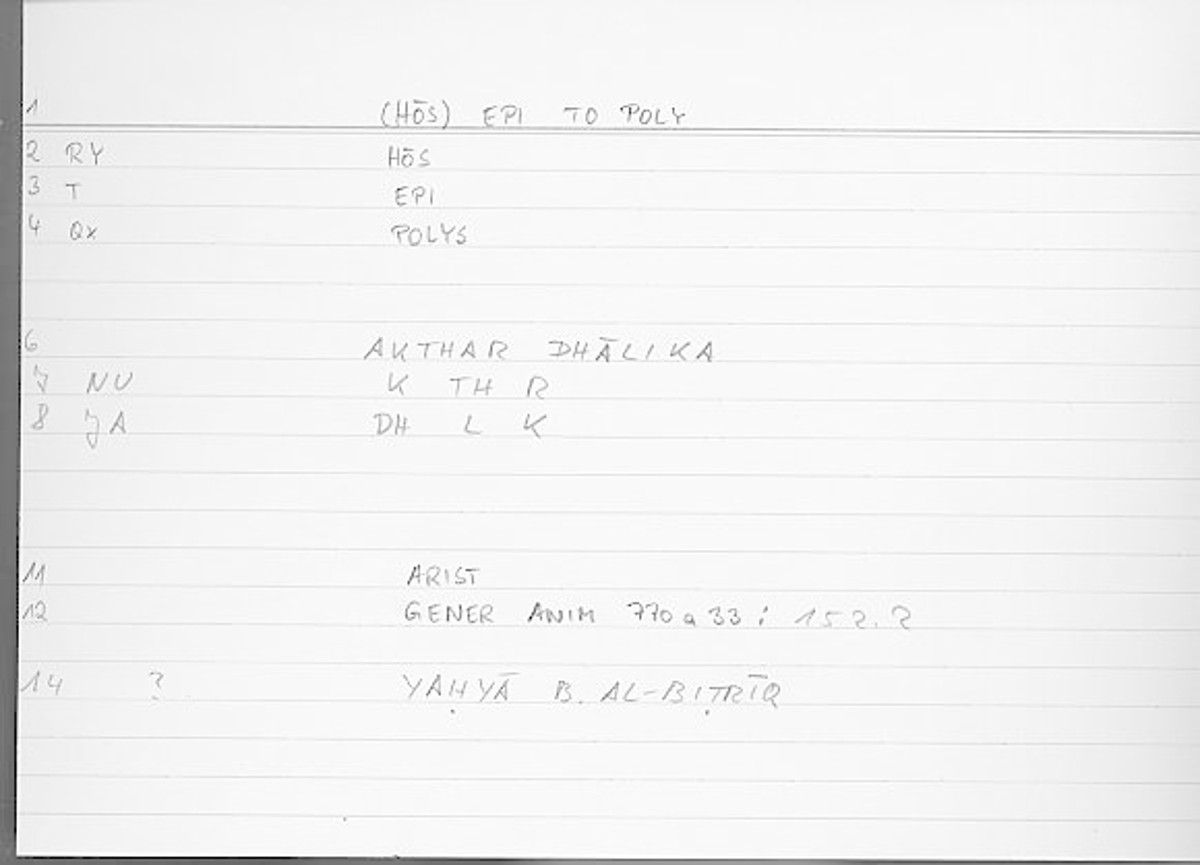 1 (HŌS) EPI TO POLY
2 RY HŌS
3 T EPI
4 Qx POLYS
6 AKTHAR DHĀLIKA
7 NU K TH R
8 JA DH L K
11 ARIST
12 GENER ANIM 770 a 33; 152.2
14 ? YAḤYĀ B. AL-BIṬRĪQ